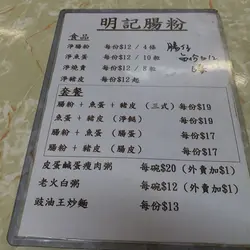 明記腸粉
食品
淨腸粉 每份$12 / 4條 腸仔
淨魚蛋 每份$12 / 10粒 每份
淨燒賣 每份$12 / 8粒
淨豬皮 每份$12起
套餐
腸粉 + 魚蛋 + 豬皮 (三式) 每份$19
魚蛋 + 豬皮 (淨餸) 每份$19
腸粉 + 魚蛋 (魚蛋) 每份$17
腸粉 + 豬皮 (豬皮) 每份$19
皮蛋鹹蛋瘦肉粥 每碗$20 (外賣加$1)
老火白粥 每碗$12 (外賣加$1)
豉油王炒麵 每份$13